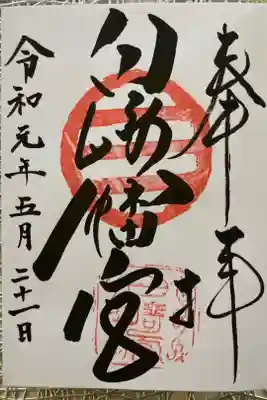 奉拝
白崎八幡宮
令和元年五月二十一日